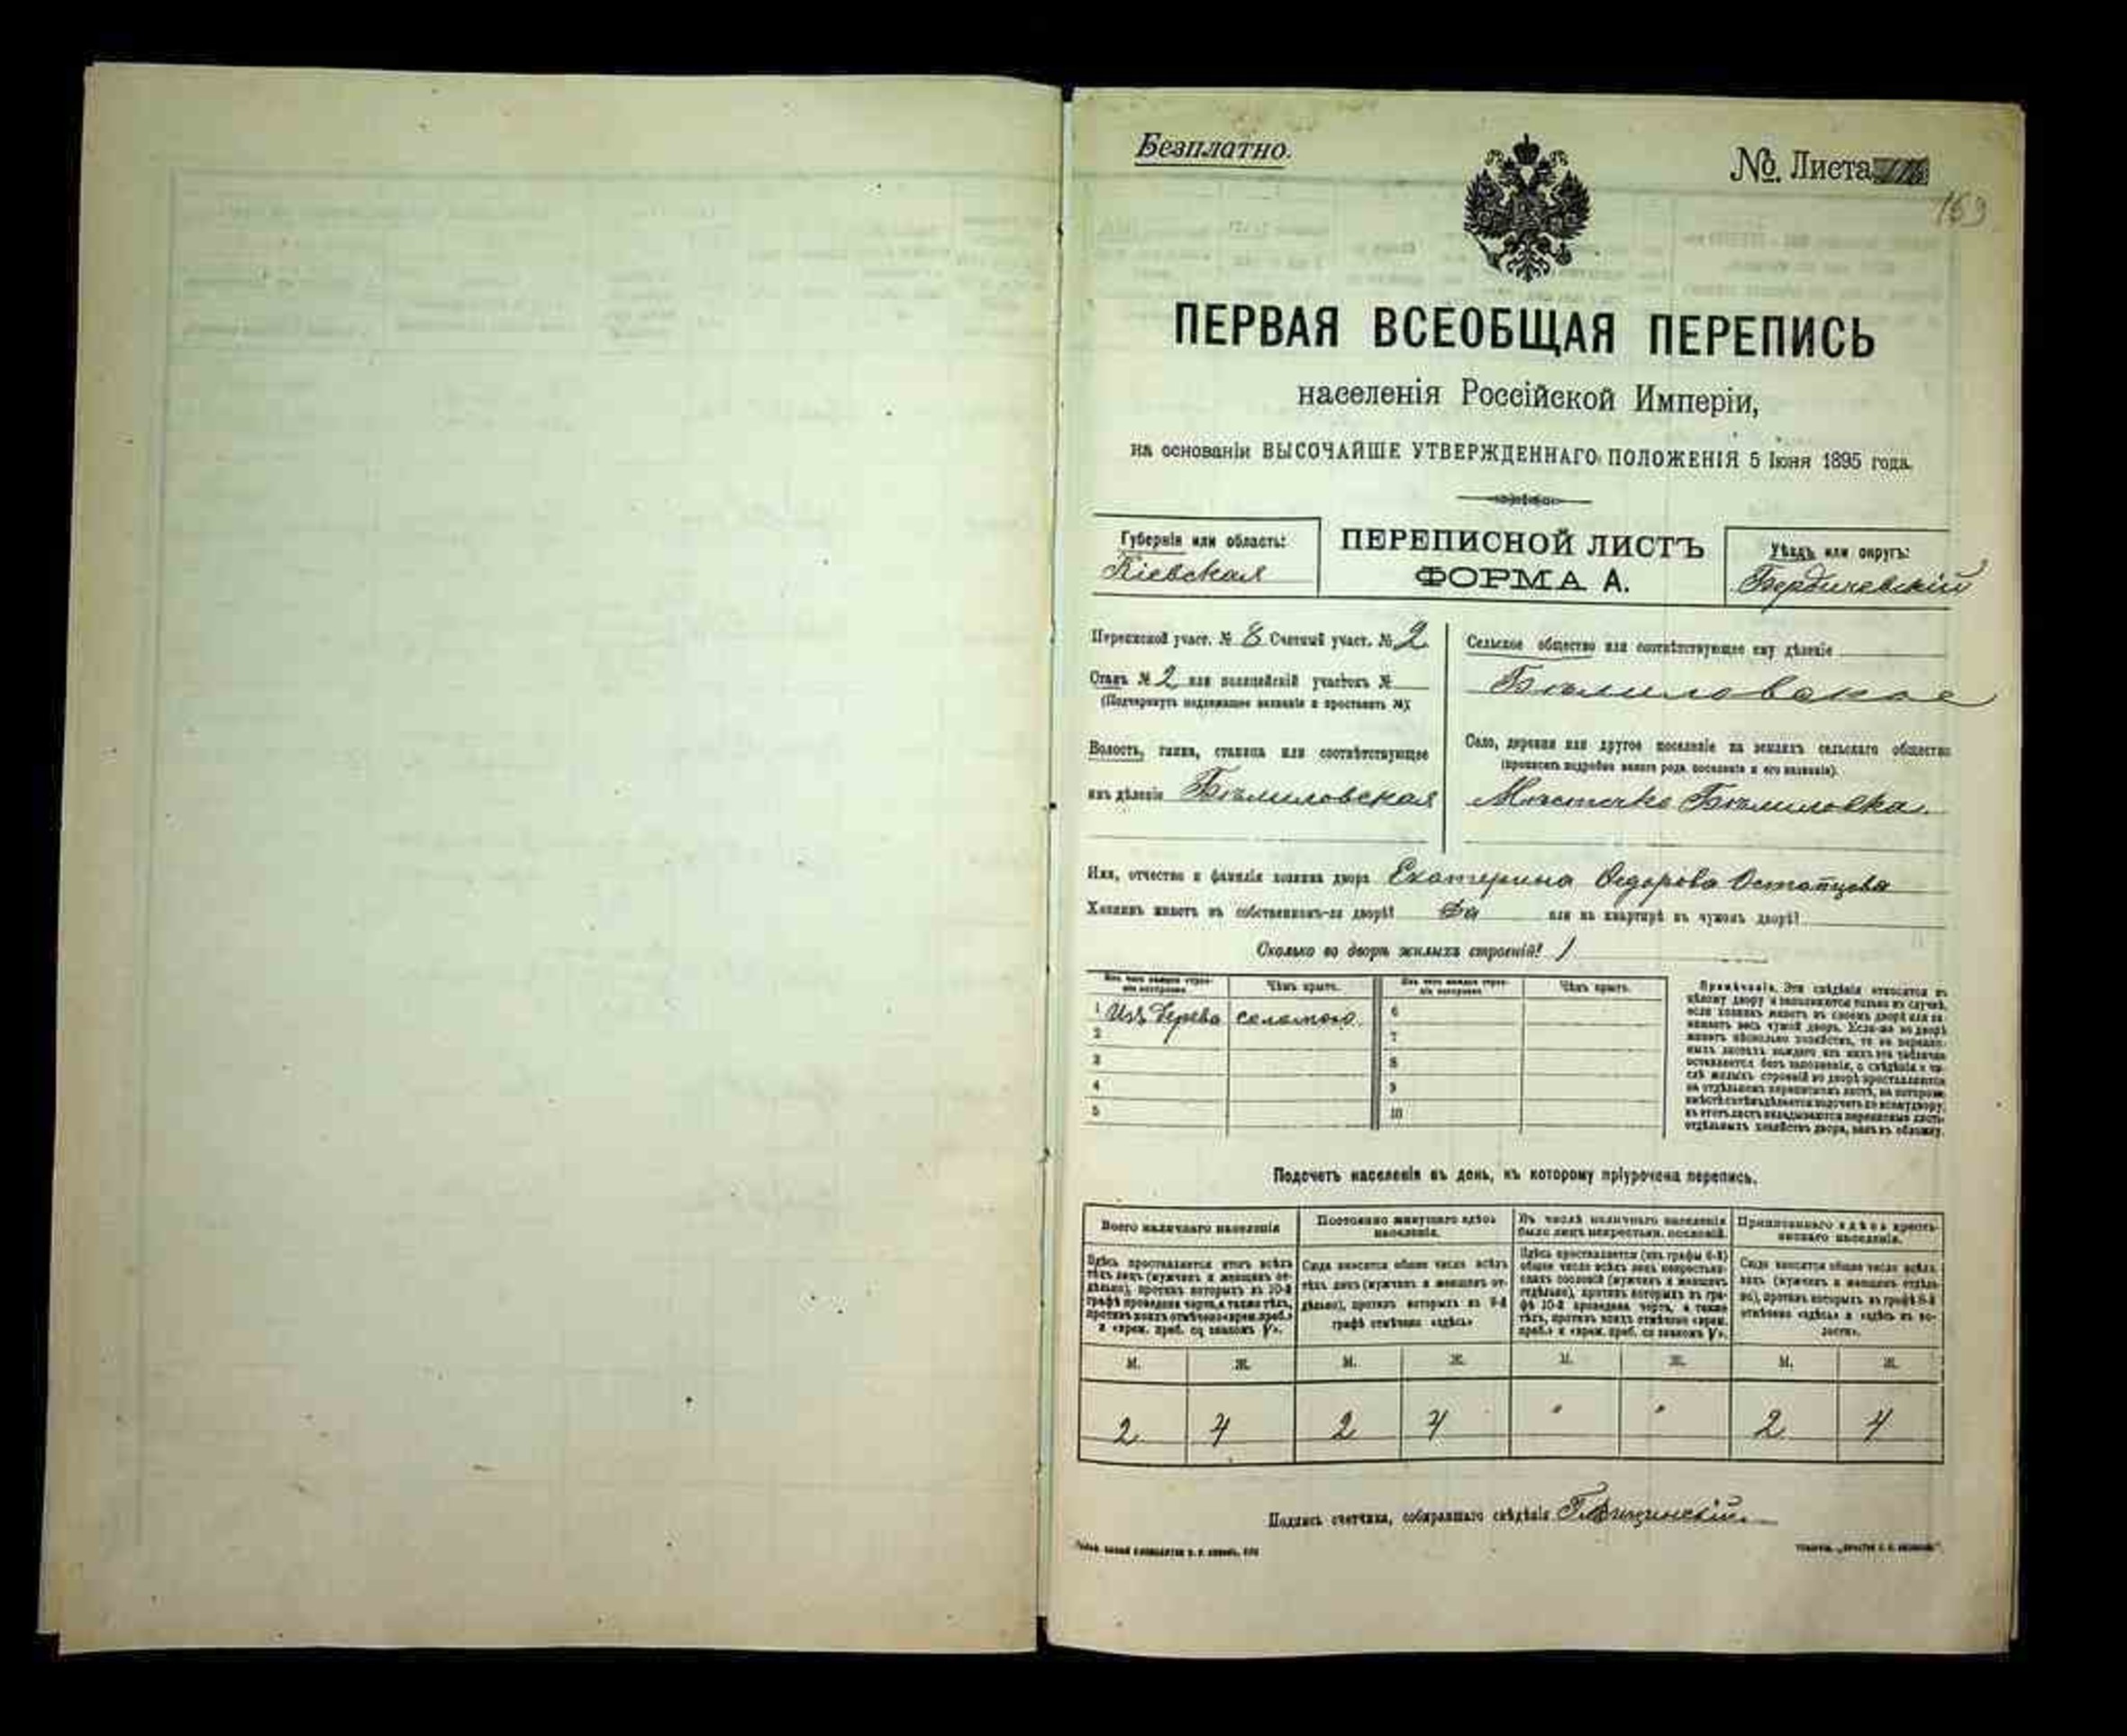 Безплатно.
№. Листа
169
ПЕРВАЯ ВСЕОБЩАЯ ПЕРЕПИСЬ
населенія Россійской Имперіи,
на основаніи ВЫСОЧАЙШЕ УТВЕРЖДЕННАГО ПОЛОЖЕНІЯ 5 Іюня 1895 года.
Губернія или область:
Кіевская
ПЕРЕПИСНОЙ ЛИСТЪ
ФОРМА А.
Уѣздъ или округъ:
Бердичевскій
Переписной участ. № 8 Счетный участ. № 2
Станъ № 2 или полицейскій участокъ №
(Подчеркнуть надлежащее названіе и проставить №)
Волость, гмина, станица или соотвѣтствующее
имъ дѣленіе Бѣлиловская
Сельское общество или соотвѣтствующее ему дѣленіе
Бѣлиловское
Село, деревня или другое поселеніе на земляхъ сельскаго общества
(прописать подробно какого рода поселеніе и его названіе).
Мѣстечко Бѣлиловка.
Имя, отчество и фамилія хозяина двора Екатерина Ѳедорова Остапцева
Хозяинъ живетъ въ собственномъ-ли дворѣ? Да или въ квартирѣ въ чужомъ дворѣ?
Сколько во дворѣ жилыхъ строеній? 1
Изъ чего каждое строе-
ніе построено.
Чѣмъ крыто.
Изъ чего каждое строе-
ніе построено.
Чѣмъ крыто.
1 Изъ дерева соломою. 6
2 7
3 8
4 9
5 10
Примѣчаніе. Эти свѣдѣнія относятся къ
цѣлому двору и заполняются только въ случаѣ,
если хозяинъ живетъ въ своемъ дворѣ или за-
нимаетъ весь чужой дворъ. Если-же во дворѣ
живетъ нѣсколько хозяйствъ, то на перепис-
ныхъ листахъ каждаго изъ нихъ эта табличка
оставляется безъ заполненія, а свѣдѣнія о чи-
слѣ жилыхъ строеній во дворѣ проставляются
на отдѣльномъ переписномъ листѣ, на которомъ
вмѣстѣ съ тѣмъ дѣлается подсчетъ по всему двору;
въ этотъ листъ вкладываются переписные листы
отдѣльныхъ хозяйствъ двора, какъ въ обложку.
Подсчетъ населенія въ день, къ которому пріурочена перепись.
Всего наличнаго населенія
Здѣсь проставляется итогъ всѣхъ
тѣхъ лицъ (мужчинъ и женщинъ от-
дѣльно), противъ которыхъ въ 10-й
графѣ проведена черта, а также тѣхъ,
противъ коихъ отмѣчено «врем. преб.»
и «врем. преб. со знакомъ V».
Постоянно живущаго здѣсь
населенія.
Сюда вносится общее число всѣхъ
тѣхъ лицъ (мужчинъ и женщинъ от-
дѣльно), противъ которыхъ въ 9-й
графѣ отмѣчено «здѣсь»
Въ числѣ наличнаго населенія
было лицъ некрестьян. сословій.
Здѣсь проставляется (изъ графы 6-й)
общее число всѣхъ лицъ некрестьян-
скихъ сословій (мужчинъ и женщинъ
отдѣльно), противъ которыхъ въ гра-
фѣ 10-й проведена черта, а также
тѣхъ, противъ коихъ отмѣчено «врем.
преб.» и «врем. преб. со знакомъ V».
Приписаннаго здѣсь кресть-
янскаго населенія.
Сюда вносится общее число всѣхъ
лицъ (мужчинъ и женщинъ отдѣль-
но), противъ которыхъ въ графѣ 8-й
отмѣчено «здѣсь» и «здѣсь въ во-
лости».
М. Ж. М. Ж. М. Ж. М. Ж.
2 4 2 4 " " 2 4
Подпись счетчика, собиравшаго свѣдѣнія